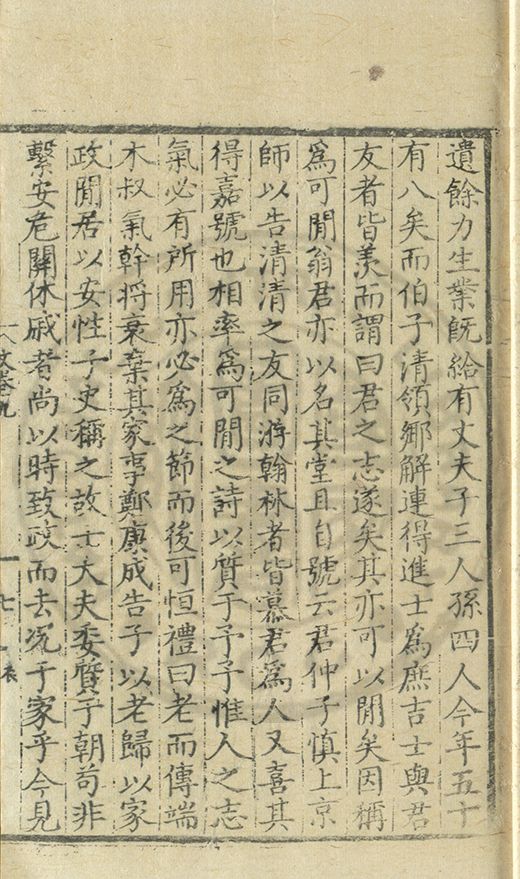 遺餘力生業既給有丈夫子三人孫四人今年五十
有八矣而伯子清領鄉解連得進士為庶吉士與君
友者皆羨而謂曰君之志遂矣其亦可以閒矣因稱
為可閒翁君亦以名其堂且自號云君仲子慎上京
師以告清清之友同游翰林者皆慕君為人又喜其
得嘉號也相率為可閒之詩以質于予予惟人之志
氣必有所用亦必為之節而後可恒禮曰老而傳端
木叔氣幹將衰棄其家事鄭康成告子以老歸以家
政閒居以安性子史稱之故士大夫委質于朝苟非
繫安危關休戚者尚以時致政而去况于家乎今見
文卷九
七